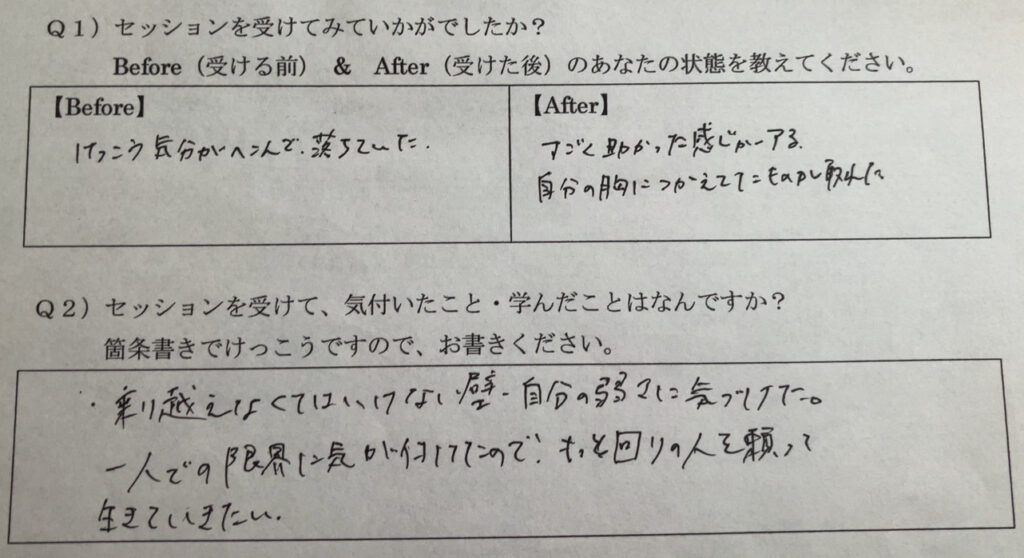 Q1）セッションを受けてみていかがでしたか？
Before（受ける前） & After（受けた後）のあなたの状態を教えてください。
【Before】
けっこう気分がヘコんで、落ちていた.
【After】
すごく助かった感じがーする.
自分の胸につかえてたものが取れた
Q2）セッションを受けて、気付いたこと・学んだことはなんですか？
箇条書きでけっこうですので、お書きください。
・乗り越えなくてはいけない壁・自分の弱さに気づけた。
一人での限界に気が付けたので、もっと回りの人を頼って
生きていきたい.